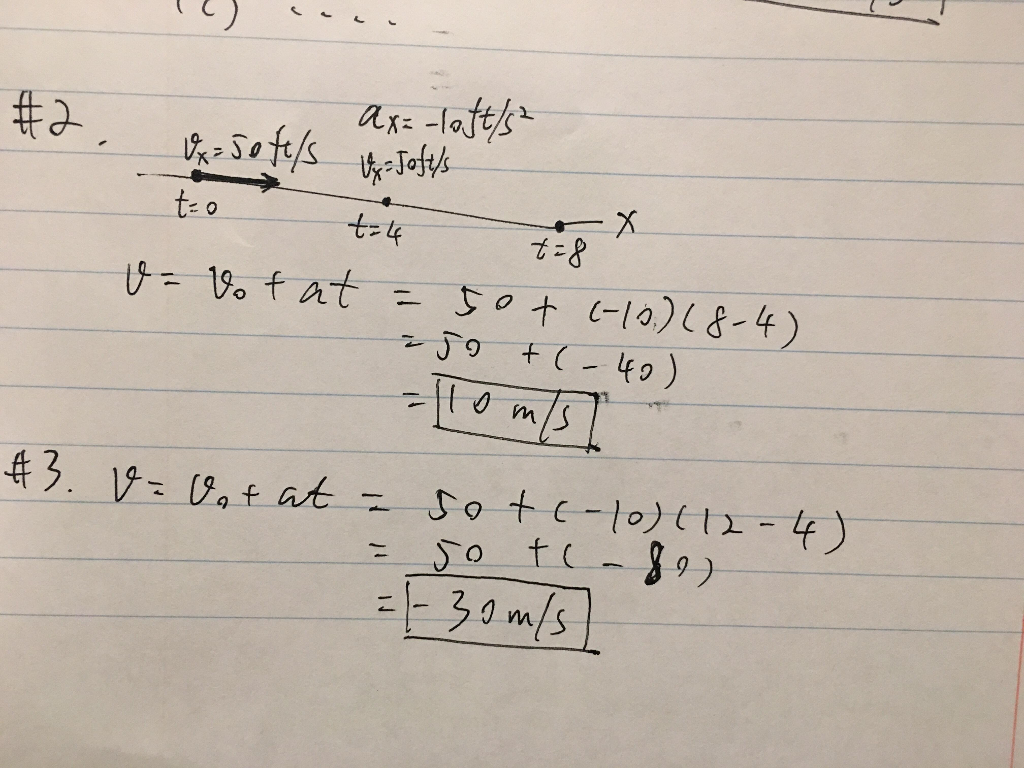 (c) ....
#2.
ax = -10ft/s²
vx = 50 ft/s
vx = 50ft/s
t=0
t=4
t=8
x
v = v₀ + at = 50 + (-10)(8-4)
= 50 + (-40)
= 10 m/s
#3. v = v₀ + at = 50 + (-10)(12-4)
= 50 + (-80)
= -30 m/s